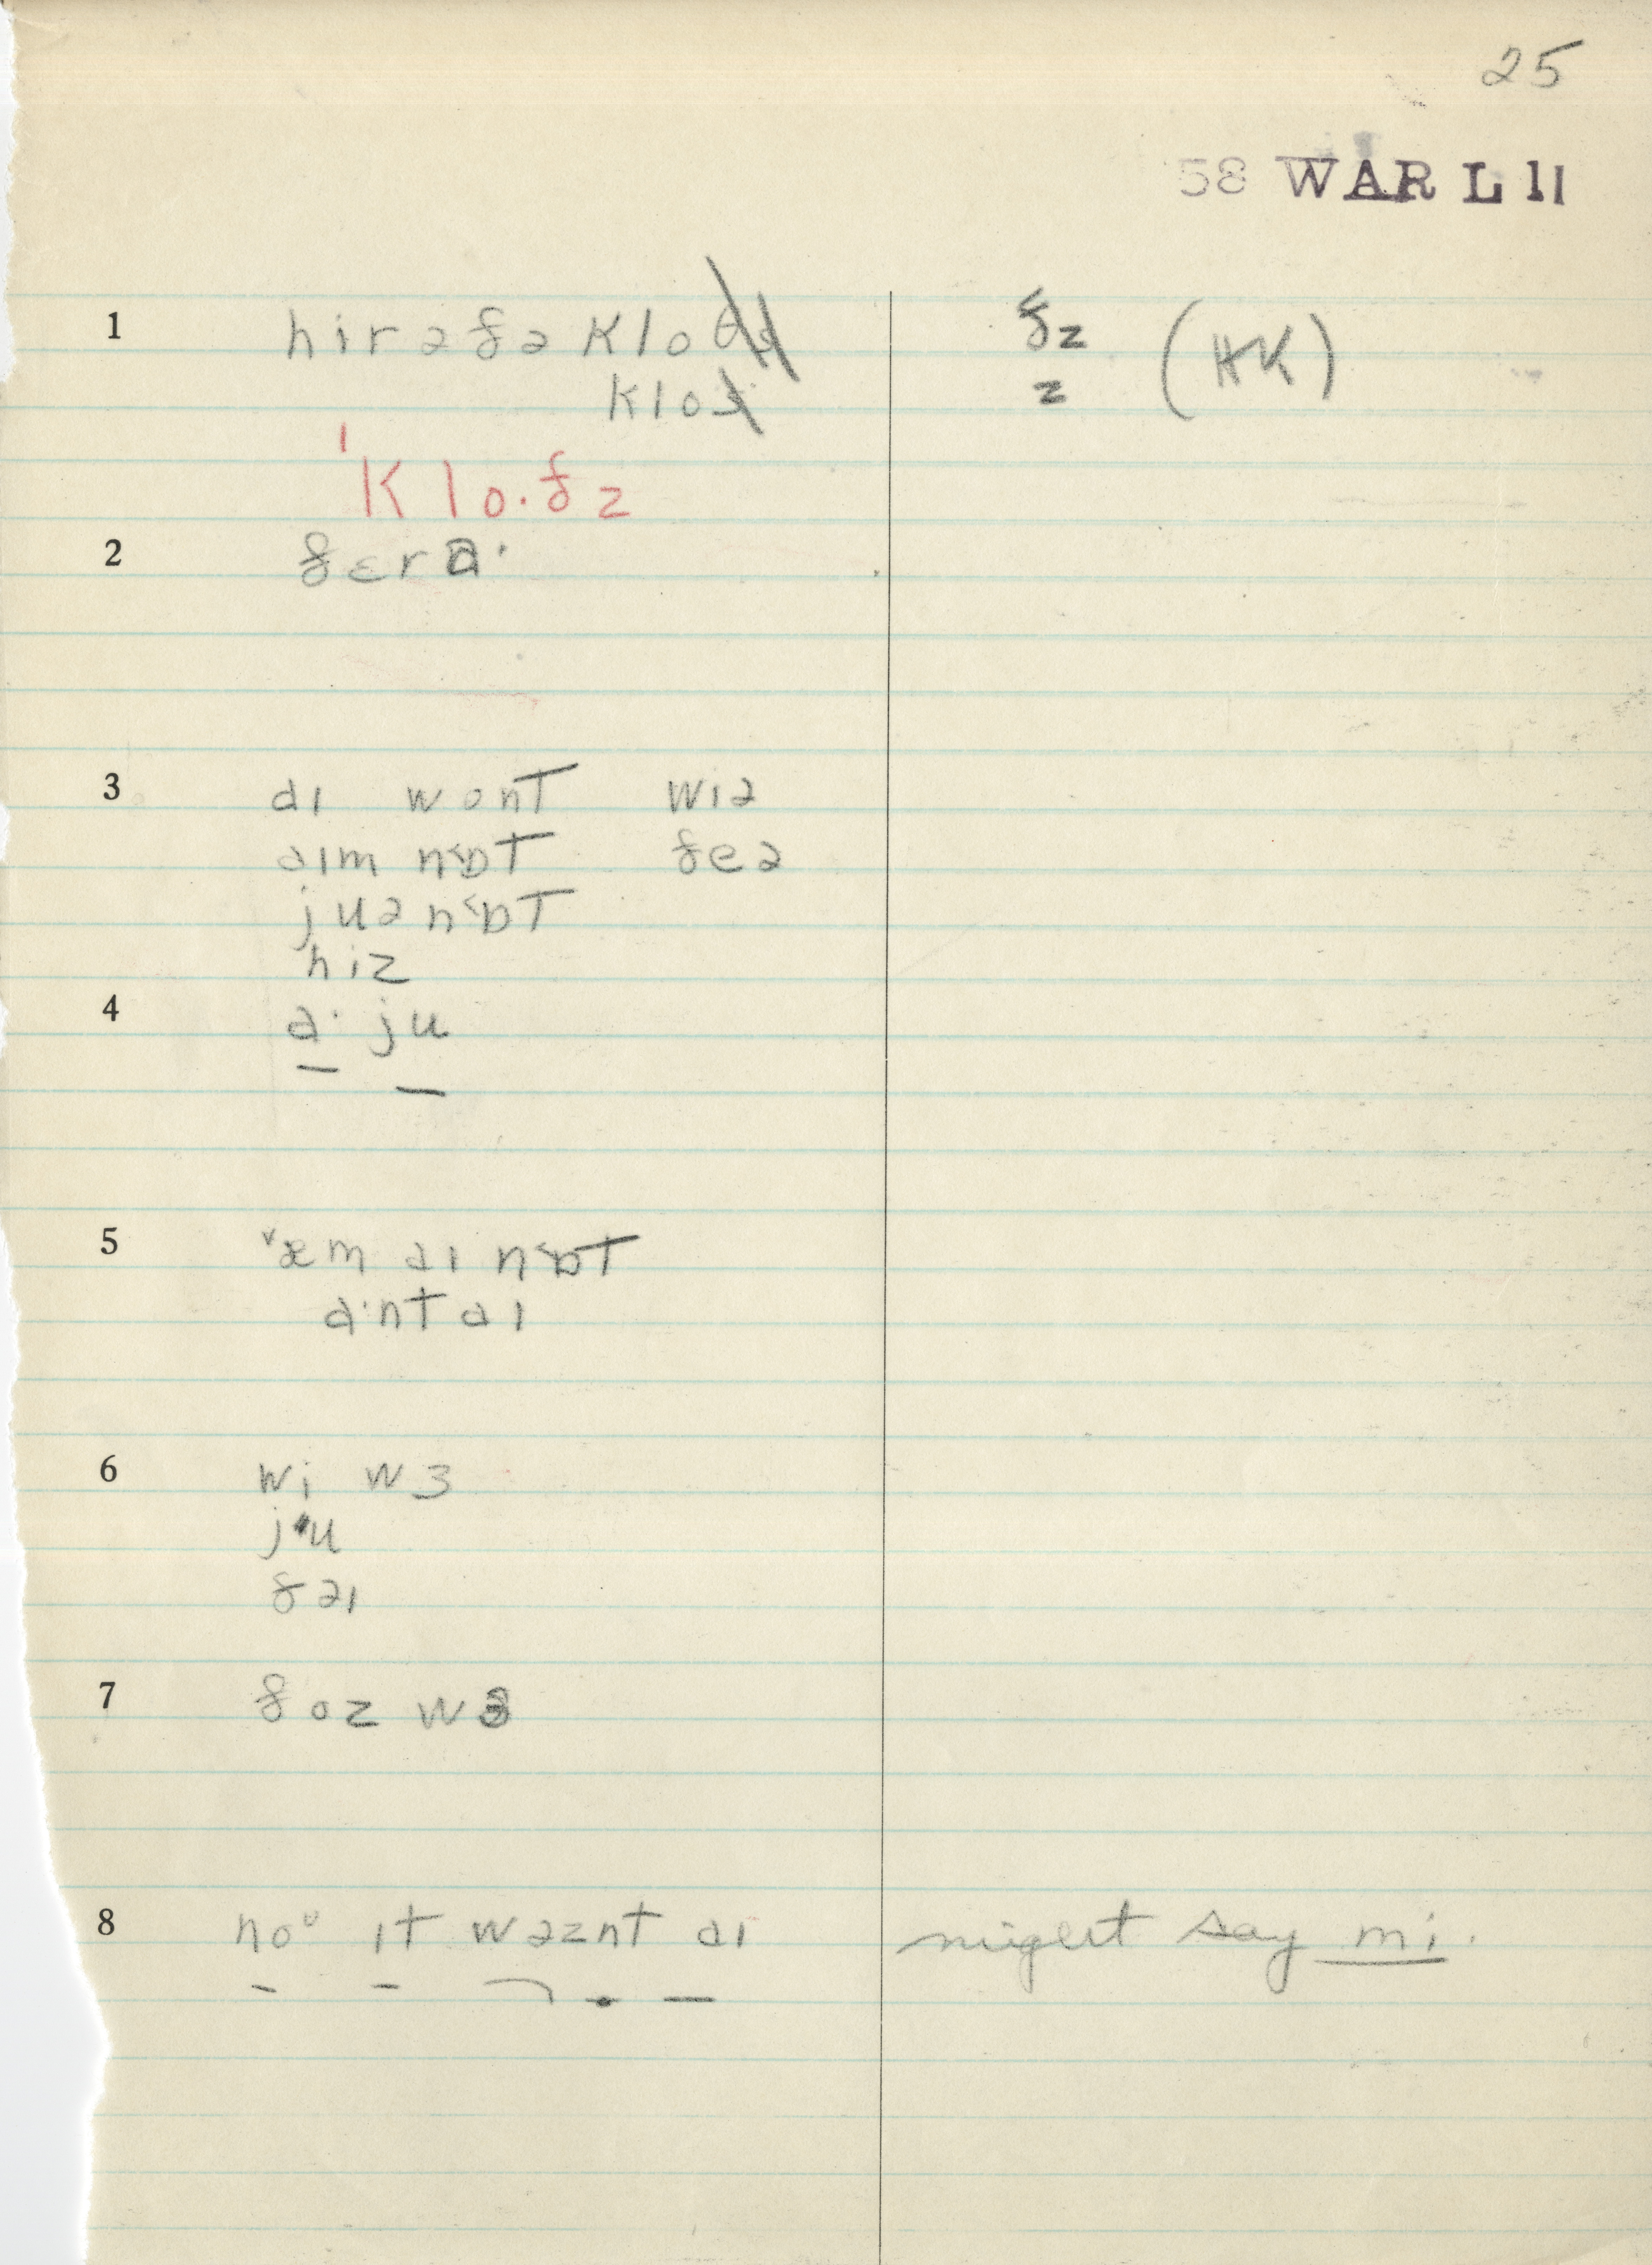 25
58 WAR L 11
1 hirəðə kloðz ðz (HK)
kloz z
ˈklo·ðz
2 ðɛrɑ·
3 aɪ wont wiə
aɪm n˂ɒt ðeə
juə n˂ɒt
hiz
4 a· ju
5 ˅æm aɪ n˂ɒt
a·nt aɪ
6 wi wɜ
ju
ðaɪ
7 ðoz wɜ
8 noᶷ ɪt wəznt aɪ might say mi.